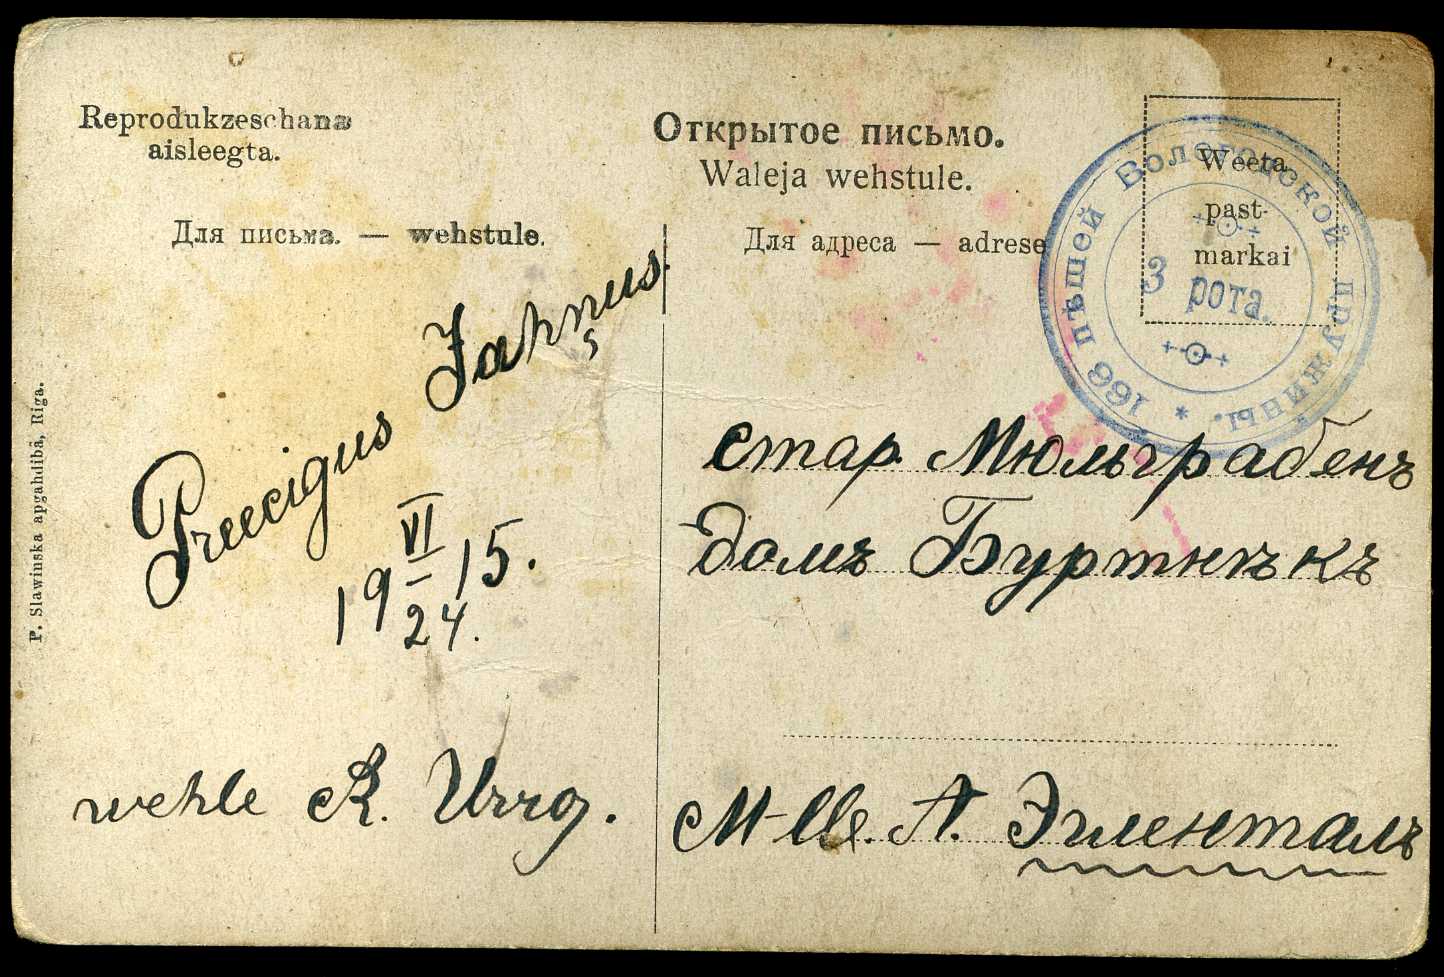 Reprodukzeschana
aisleegta.
Открытое письмо.
Waleja wehstule.
Для письма. — wehstule.
Для адреса — adrese
Weeta
past-
markai
166 пѣшей Вологодской дружины. *
3 рота.
P. Slawinska apgahdibâ, Riga.
Preecigus Jahņus.
19 VI/24 15.
wehle R.
стар. Мюльграбенъ
домъ Буртнѣкъ
M-lle. А. Эгленталь